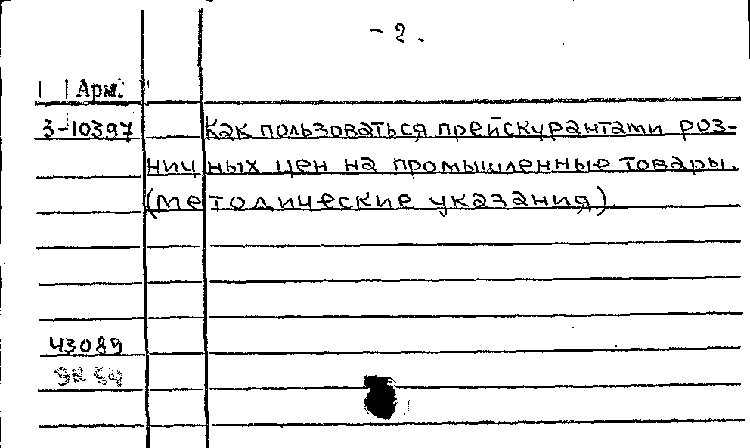 - 2.
Арм.
3-10397 Как пользоваться прейскурантами роз-
ничных цен на промышленные товары.
(методические указания)
43089